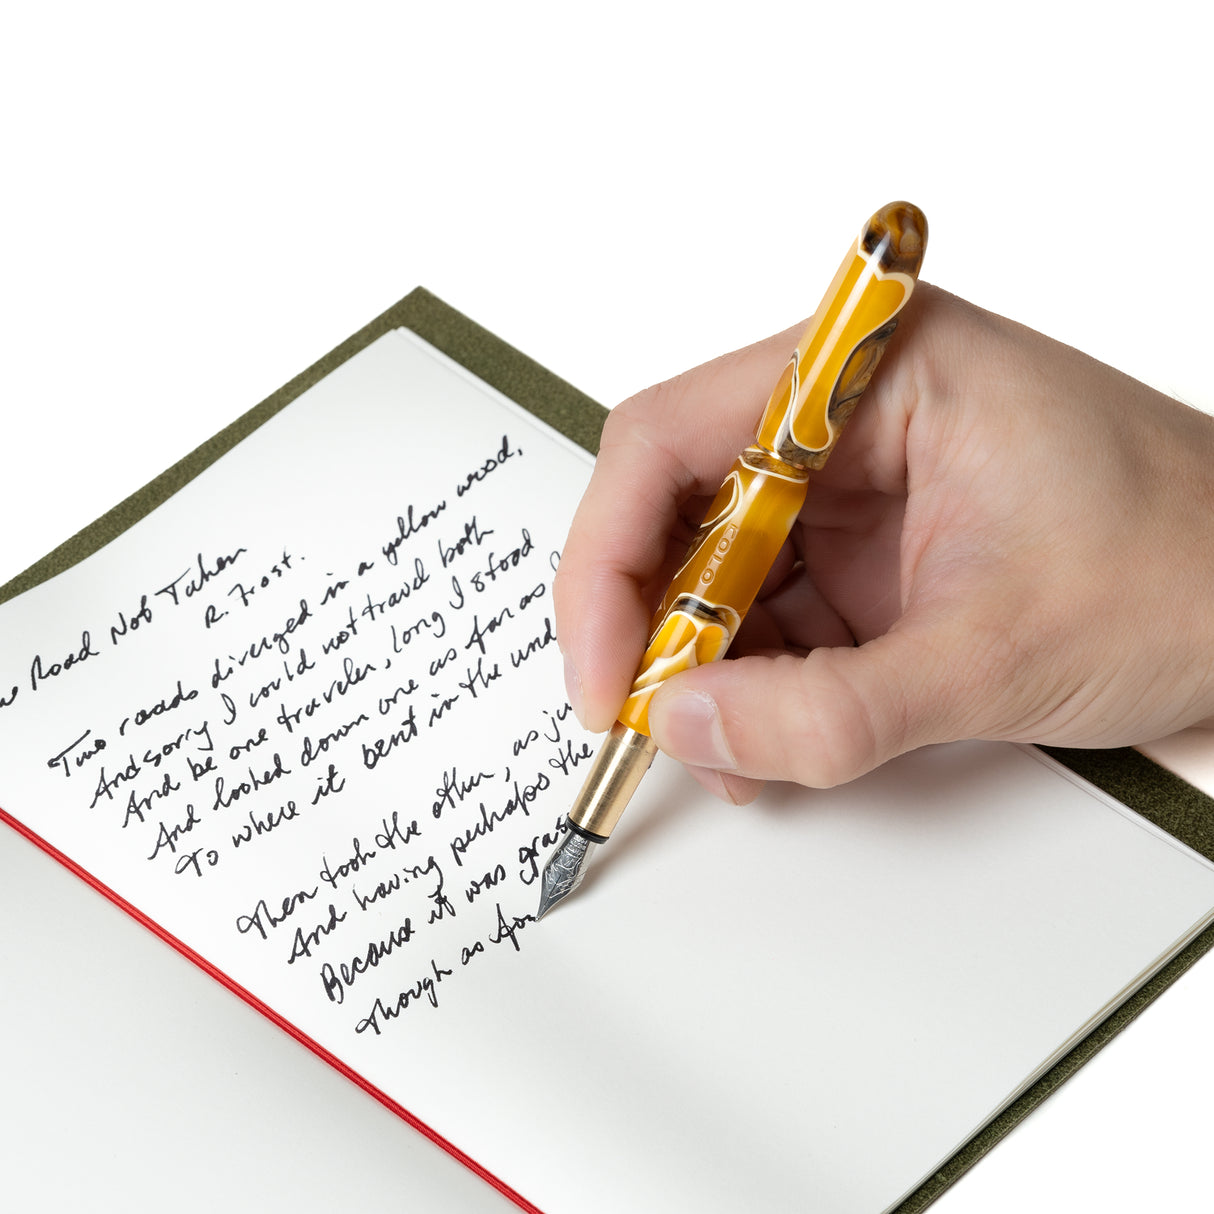 Road Not Taken
R. Frost.
Two roads diverged in a yellow wood,
And sorry I could not travel both
And be one traveler, long I stood
And looked down one as far as I
To where it bent in the und
Then took the other, as ju
And having perhaps the
Because it was gras
Though as for
POLO